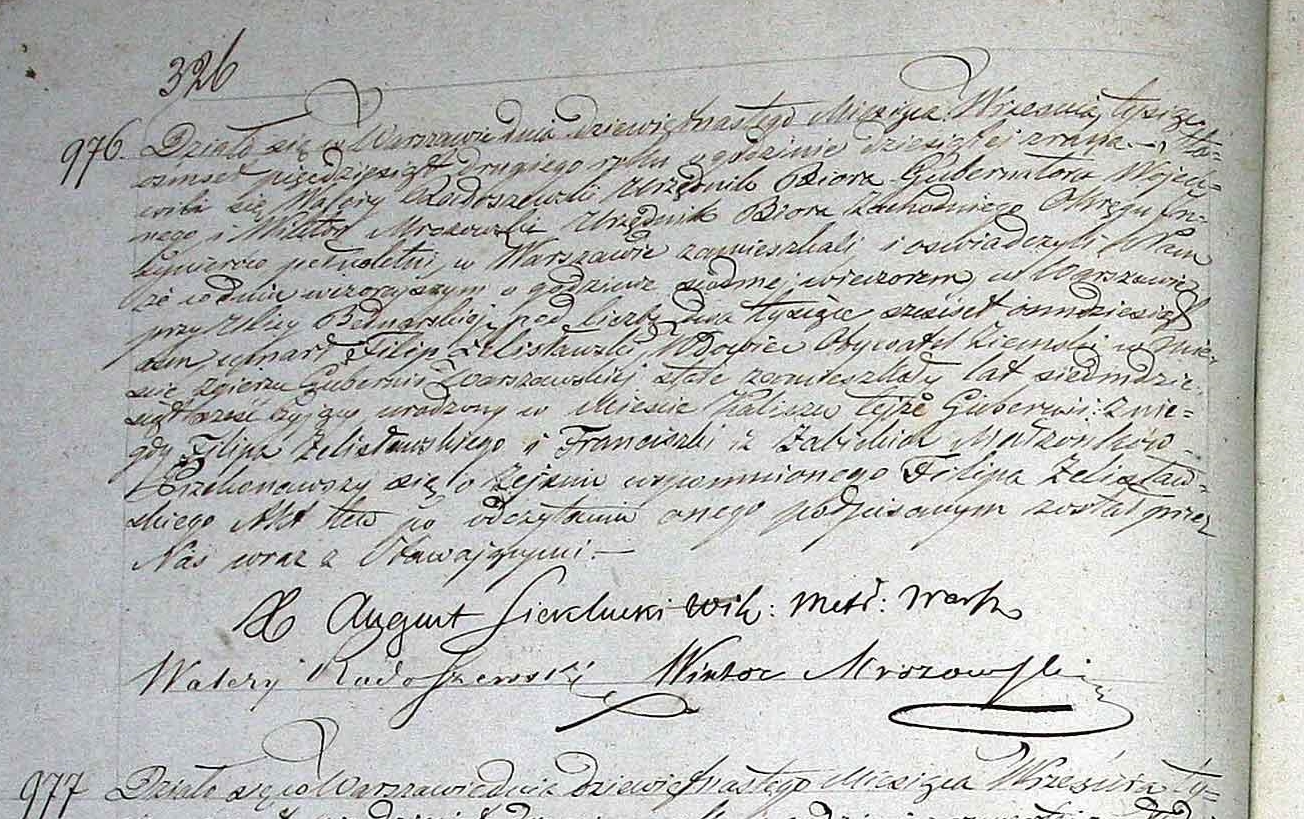 326
976. Działo się w Warszawie dnia dziewiętnastego Miesiąca Września tysiąc
osmset pięćdziesiąt drugiego roku o godzinie dziesiątej zrana.— Sta-
wili się Walery Radoszewski Urzędnik Biora Gubernatora Wojen-
nego i Wiktor Mrozowski Urzędnik Biora Zachodniego Okręgu In-
żynierów pełnoletni, w Warszawie zamieszkali i oświadczyli Nam
że w dniu wczorajszym o godzinie siódmej wieczorem w Warszawie
przy Ulicy Bednarskiej pod liczbą dwa tysiące sześćset ośmdziesiąt
umarł Filip Zelisławski, Wdowiec Obywatel Ziemski w Mie-
ście Zgierzu Gubernii Warszawskiej stale zamieszkały lat siedmdzie-
siąt sześć żyjący urodzony w Mieście Kaliszu tejże Gubernii z nie-
gdy Filipa Zelisławskiego i Franciszki z Małżonków.—
Przekonawszy się o zejściu wspomnionego Filipa Zelisław-
skiego Akt ten po odczytaniu onego podpisanym został przez
Nas wraz z Stawającymi—
X August Wik: Metr: Warsz
Walery Radoszewski Wiktor Mrozowski
977 Działo się w Warszawie dnia dziewiętnastego Miesiąca Września ty-